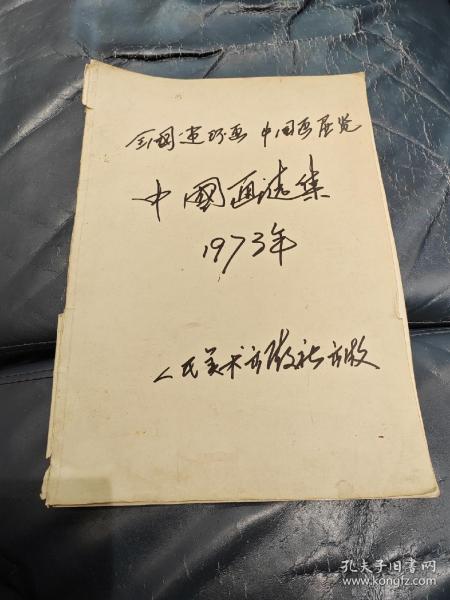 全国连环画 中国画展览
中國画选集
1973年
人民美术出版社出版
孔夫子旧书网
www.kongfz.com